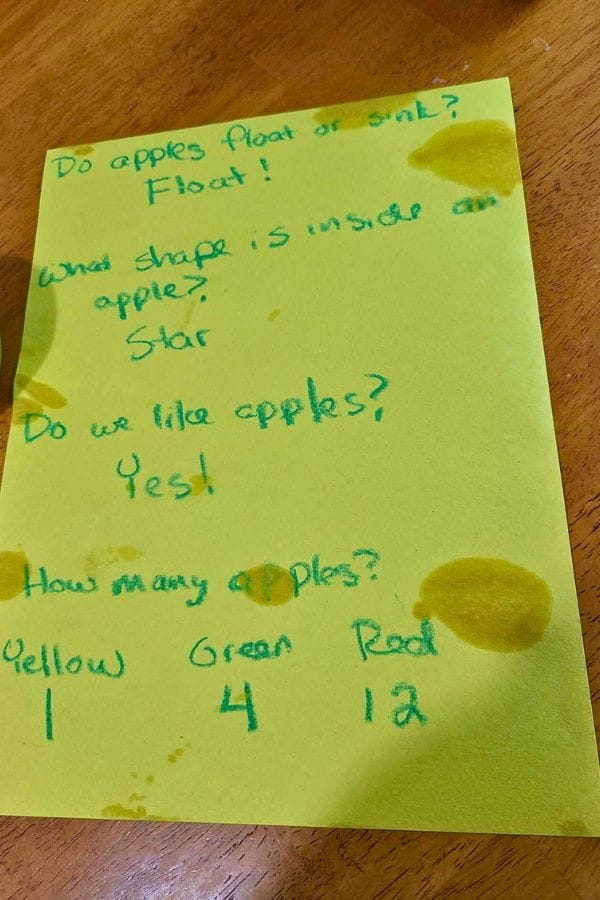 Do apples float or sink?
Float!
What shape is inside an
apple?
Star
Do we like apples?
Yes!
How many apples?
Yellow Green Red
1 4 12